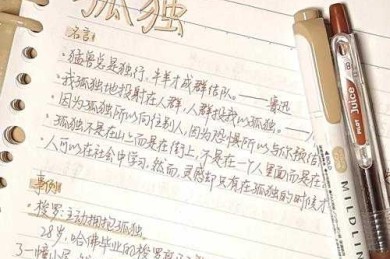 孤独
名言:
·猛兽总是独行,牛羊才成群结队。——鲁迅
·我孤独地投射在人群,人群投我以孤独。——
·因为孤独所以向往别人,因为恐惧所以与
·孤独不是在山上而是在街上,不是在一个人里面而是在
·人可以在社会中学习,然而,灵感却只有在孤独的时候才
事例:
·梭罗:主动拥抱孤独。
28岁,哈佛毕业的梭罗
了一幢小屋
PILOT Juice
MILDLIN